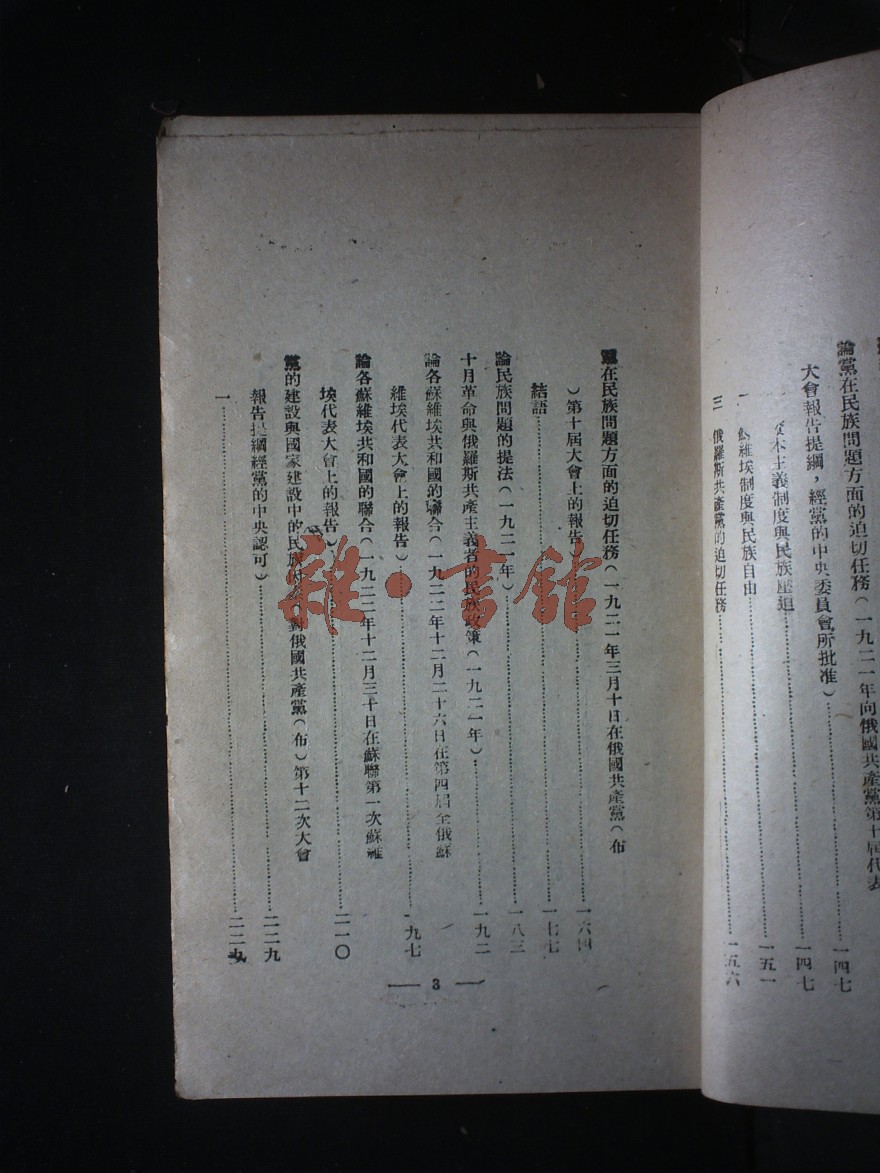 論黨在民族問題方面的迫切任務(一九二一年向俄國共產黨第十屆代表
大會報告提綱,經黨的中央委員會所批准)……一四七
本主義制度與民族壓迫……一四七
維埃制度與民族自由……一五一
三 俄羅斯共產黨的迫切任務……一五六
黨在民族問題方面的迫切任務(一九二一年三月十日在俄國共產黨(布
)第十屆大會上的報告……一六四
結語……一七七
論民族問題的提法(一九二一年)……一八三
十月革命與俄羅斯共產主義者的民族政策(一九二一年)……一九二
論各蘇維埃共和國的聯合(一九二二年十二月二十六日在第四屆全俄蘇
維埃代表大會上的報告)……九七
論各蘇維埃共和國的聯合(一九二二年十二月三十日在蘇聯第一次蘇維
埃代表大會上的報告)……二一〇
黨的建設與國家建設中的民族 對俄國共產黨(布)第十二次大會
報告提綱經黨的中央認可)……二二九
一……二二九
3
雜·書館